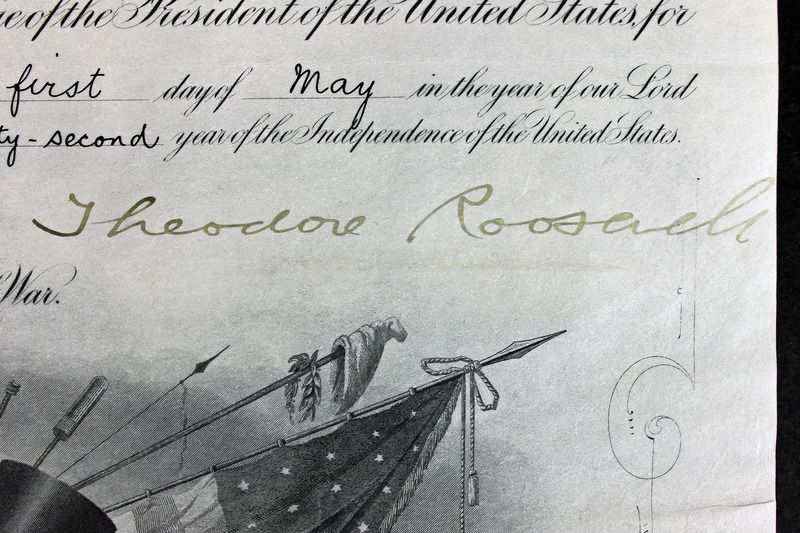 e of the President of the United States, for
first day of May in the year of our Lord
ty-second year of the Independence of the United States.
Theodore Roosevelt
War.